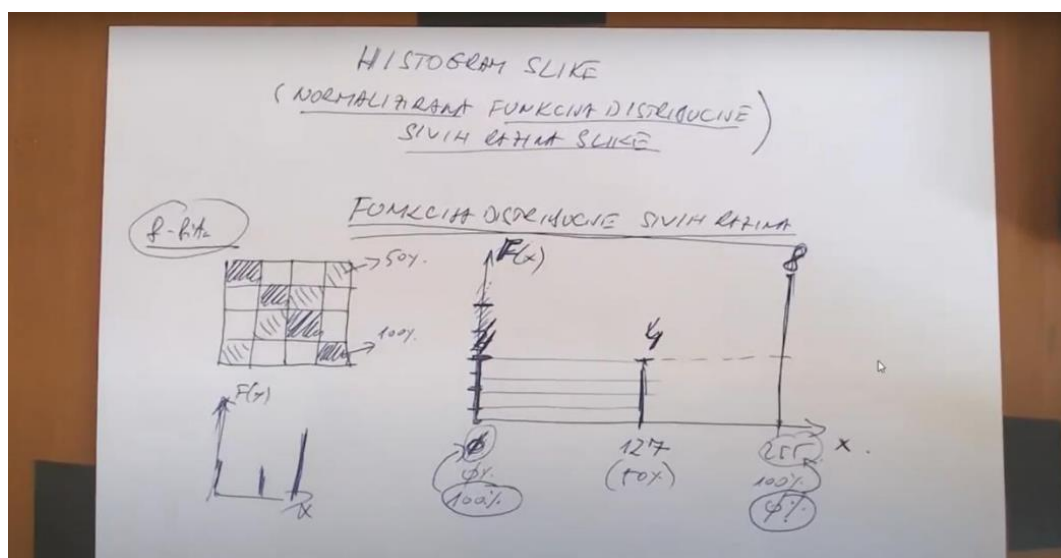 HISTOGRAM SLIKE
(NORMALIZIRANA FUNKCIJA DISTRIBUCIJE
SIVIH RAZINA SLIKE)
FUNKCIJA DISTRIBUCIJE SIVIH RAZINA
8-bita
50%
100%
F(x)
4
4
8
F(x)
x
0
127
255
x
0%
(50%)
100%
100%
0%